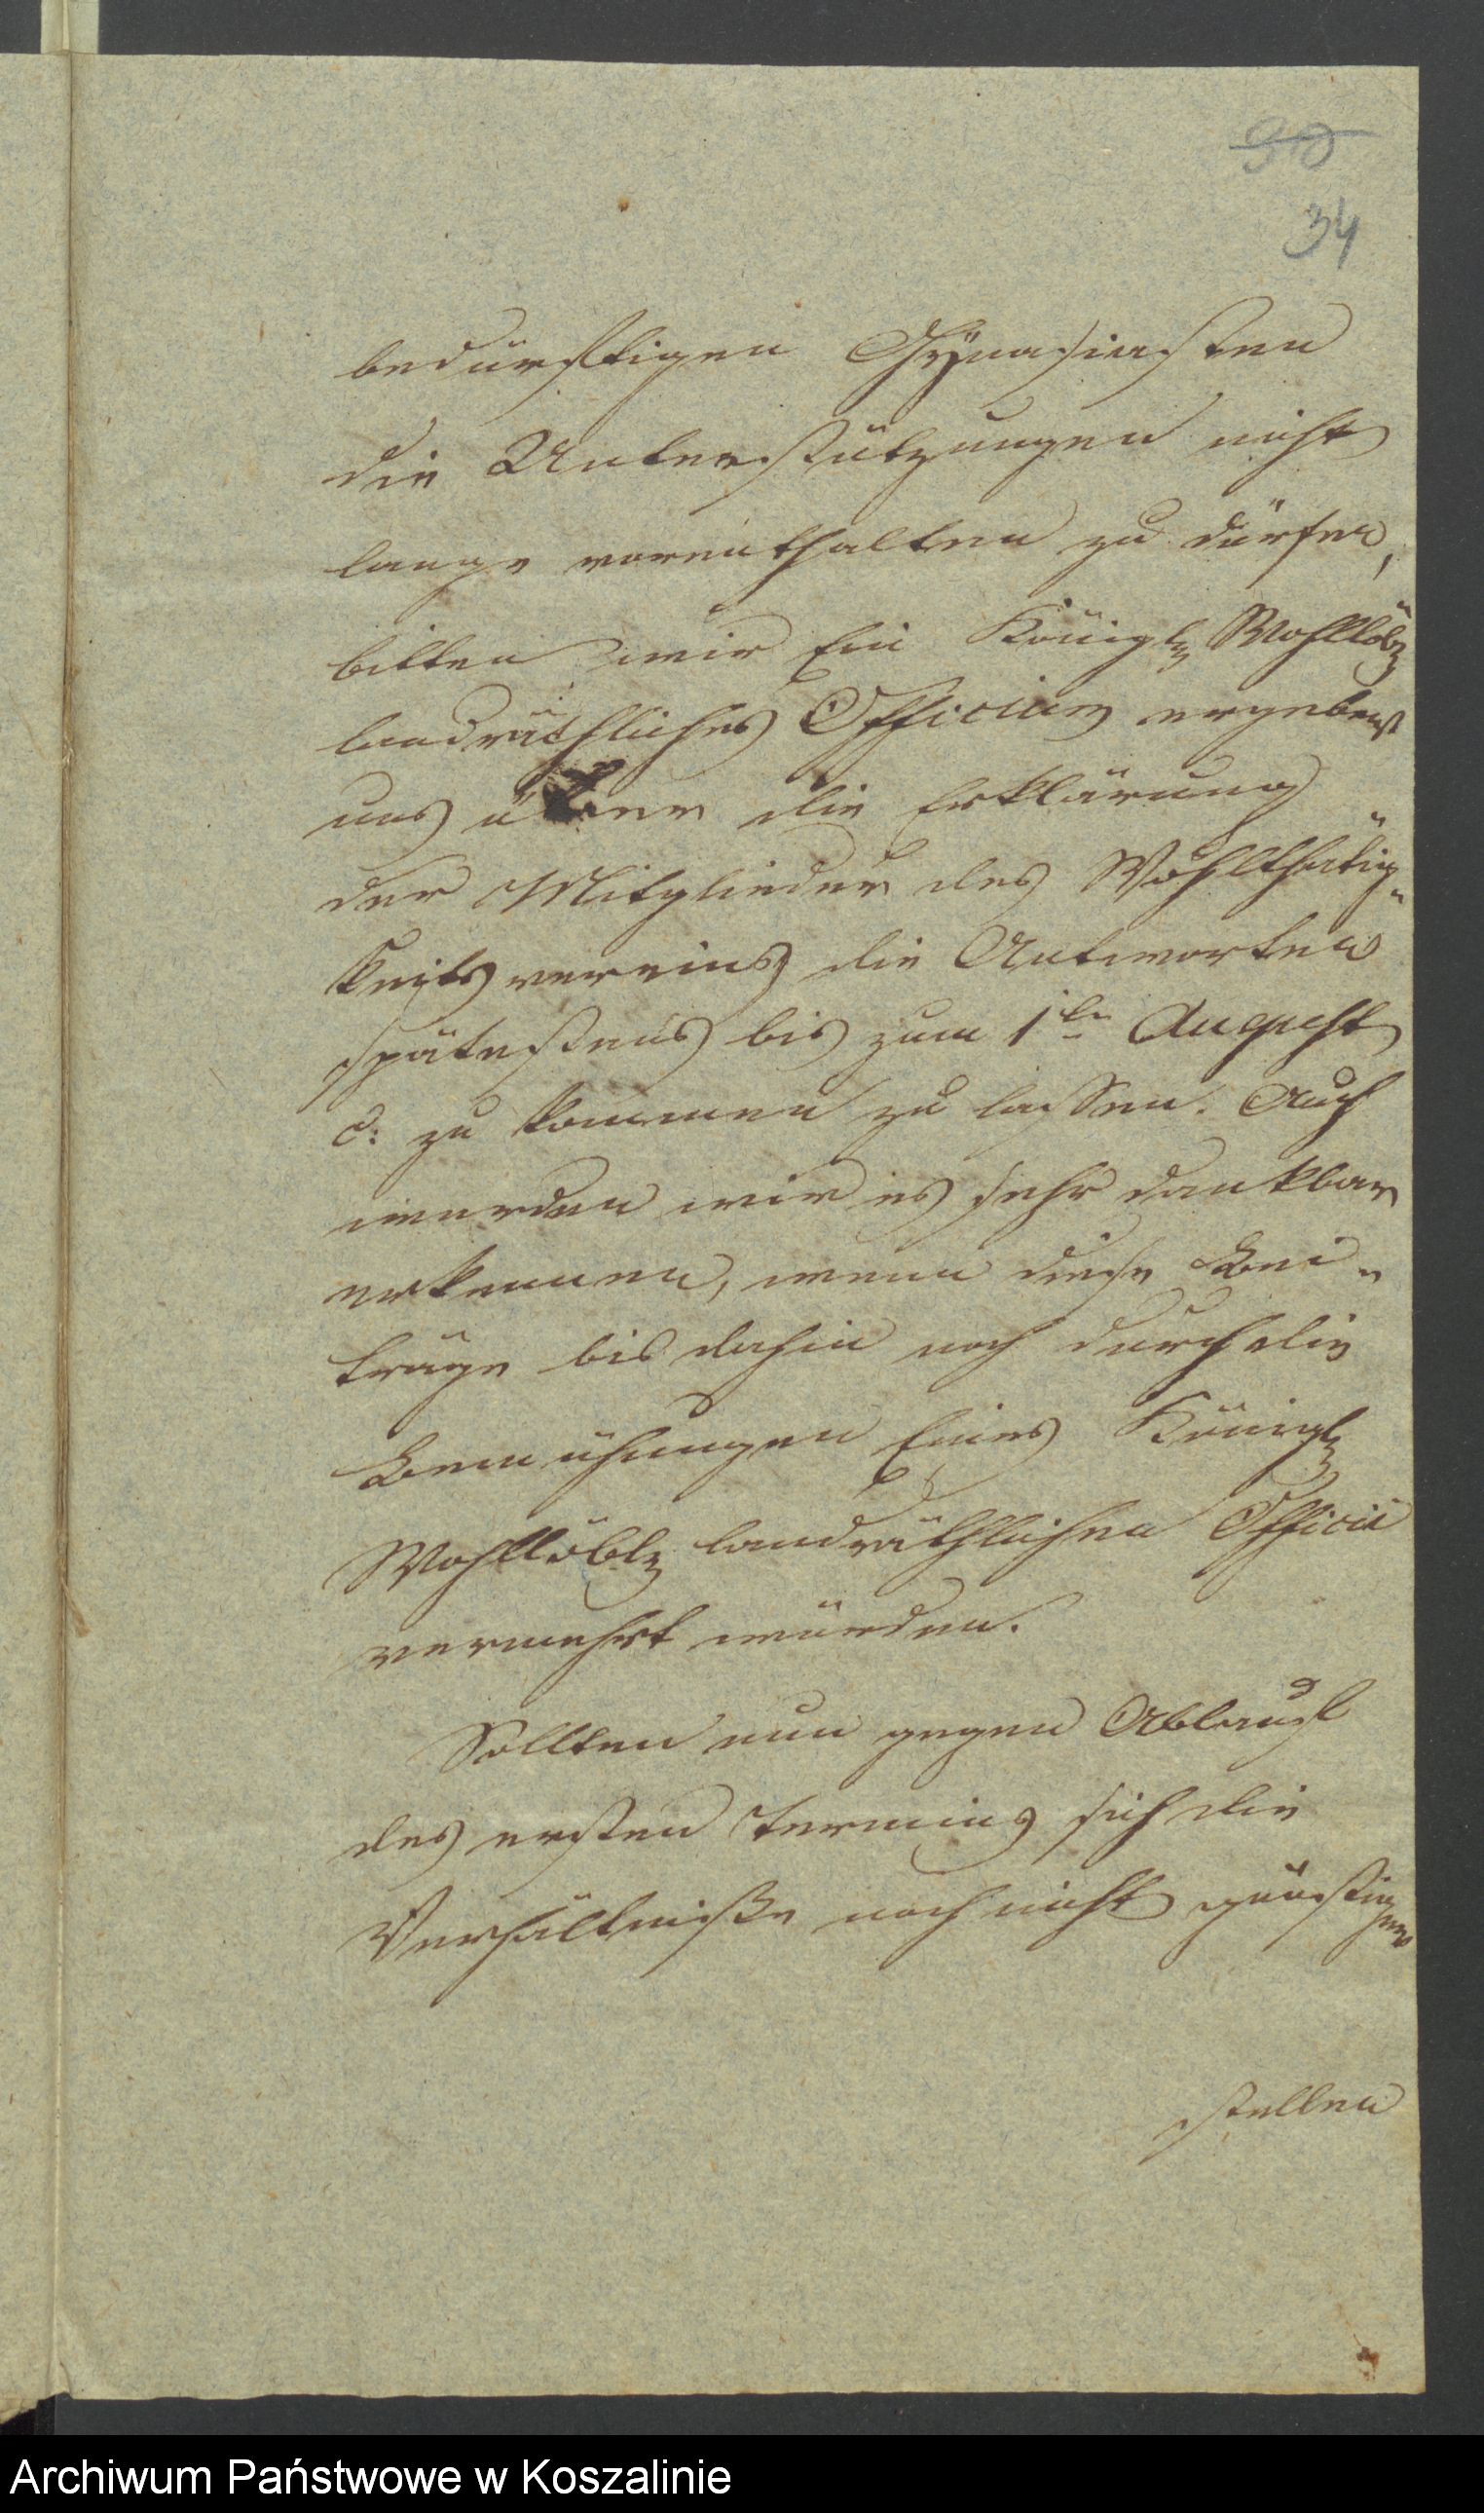 90
34
bedürftigen Gymnasiasten
die Unterstützungen nicht
lange vorenthalten zu dürfen,
bitten wir Ein Königl. Wohllöbl.
landräthliches Officium ergebenst
uns über die Erklärung
der Mitglieder des Wohlthätig-
keitsvereins die Antworten
spätestens bis zum 1ten August
c: zu kommen zu lassen. Auch
werden wir es sehr dankbar
erkennen, wenn diese Bei-
träge bis dahin noch durch die
Bemühungen Eines Königl.
Wohllöbl. landräthlichen Officii
vermehrt würden.
Sollten nun gegen Ablauf
des ersten Termins sich die
Verhältniße noch nicht günstiger
stellen
Archiwum Państwowe w Koszalinie